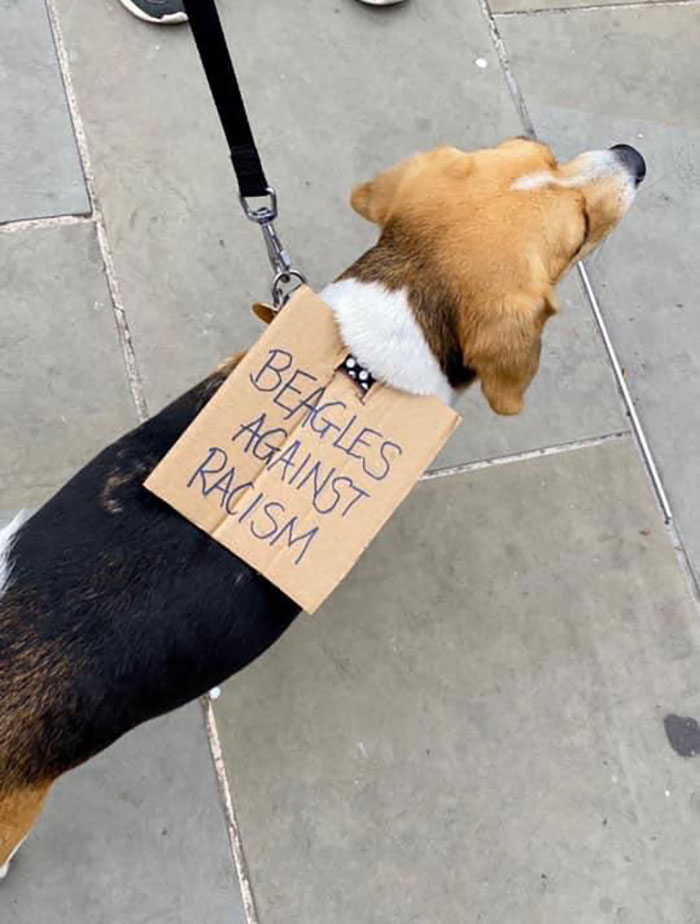 BEAGLES
AGAINST
RACISM